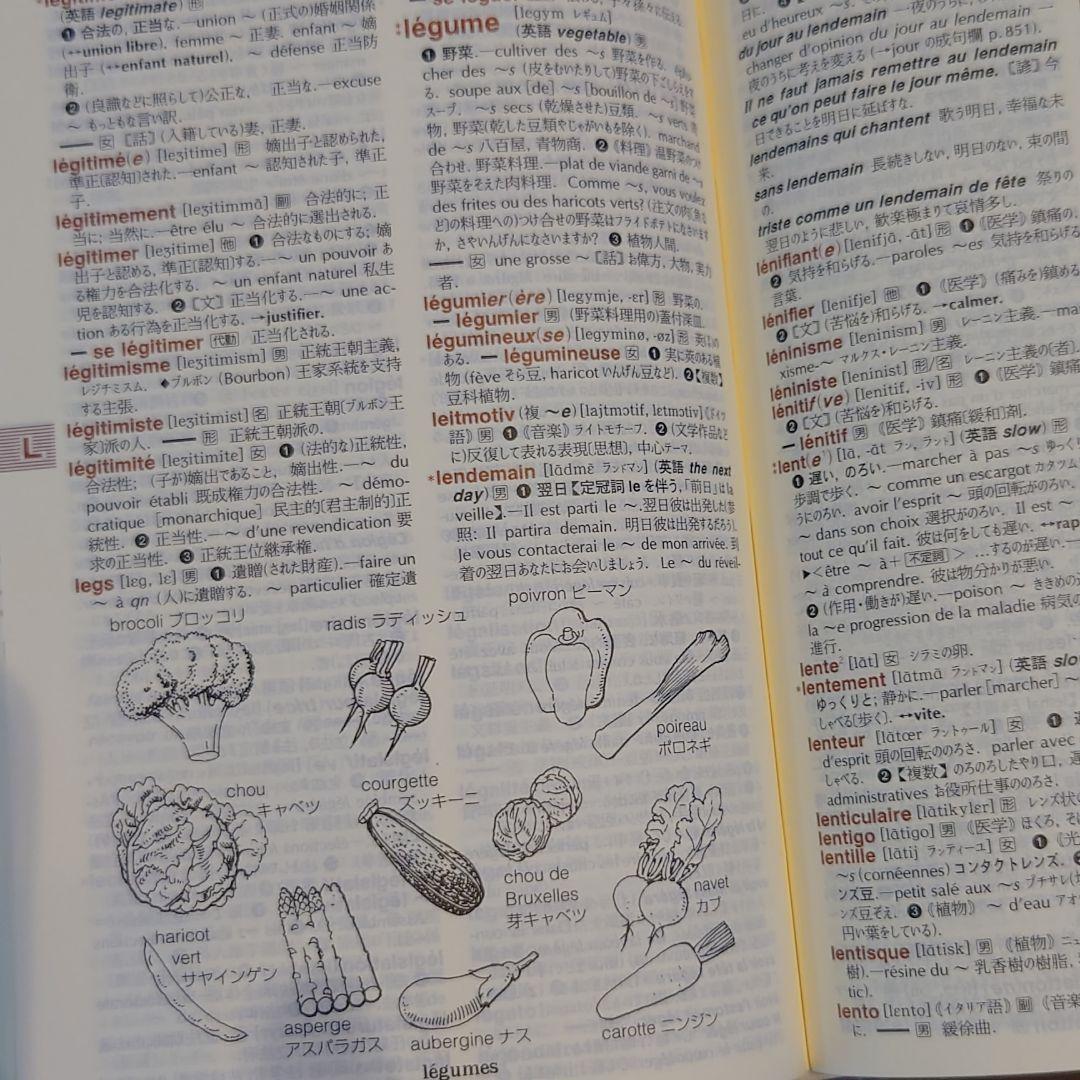 (英語 legitimate) 形
❶ 合法の, 正当な.—union ～ (正式の)婚姻関係
(↔union libre). femme ～ 正妻. enfant ～ 嫡
出子 (↔enfant naturel). ～ défense 正当防
衛.
❷ (良識などに照らして)公正な, 正当な.—excuse
～ もっともな言い訳.
— 女 〘話〙(入籍している)妻, 正妻.
légitimé(e) [leʒitime] 形 嫡出子と認められた,
準正[認知]された.—enfant ～ 認知された子, 準正
子.
légitimement [leʒitimmɑ̃] 副 合法的に; 正
当に; 当然に.—être élu ～ 合法的に選出される.
légitimer [leʒitime] 他 ❶ 合法なものにする; 嫡
出子と認める, 準正[認知]する.—～ un pouvoir あ
る権力を合法化する. ～ un enfant naturel 私生
児を認知する. ❷〘文〙正当化する.—～ une ac-
tion ある行為を正当化する. →justifier.
— se légitimer 代動 正当化される.
légitimisme [leʒitimism] 男 正統王朝主義,
レジチミスム. ◆ブルボン (Bourbon) 王家系統を支持
する主張.
légitimiste [leʒitimist] 名 正統王朝[ブルボン王
家]派の人. — 形 正統王朝派の.
légitimité [leʒitimite] 女 ❶ (法的な)正統性,
合法性; (子が)嫡出であること, 嫡出性.—～ du
pouvoir établi 既成権力の合法性. ～ démo-
cratique [monarchique] 民主的[君主制的]正
統性. ❷ 正当性.—～ d'une revendication 要
求の正当性. ❸ 正統王位継承権.
legs [lɛg, lɛ] 男 ❶ 遺贈(された財産).—faire un
～ à qn (人)に遺贈する. ～ particulier 確定遺
L
légume [legym レギュム]
(英語 vegetable) 男
❶ 野菜.—cultiver des ～s 野菜を作る.
cher des ～s (皮をむいたりして)野菜の下ごしらえを
る. soupe aux [de] ～s [bouillon de ～s] 野菜
スープ. ～s secs (乾燥させた)豆類. ～s verts 青
物, 野菜(乾した豆類やじゃがいもを除く). marchand
de ～s 八百屋, 青物商. ❷《料理》温野菜のつけ
合わせ, 野菜料理.—plat de viande garni de ～s
野菜をそえた肉料理. Comme ～s, vous voulez
des frites ou des haricots verts? (注文の肉[魚な
ど]の料理への)つけ合せの野菜はフライドポテトになさいます
か, さやいんげんになさいますか? ❸ 植物人間.
— 女 une grosse ～〘話〙お偉方, 大物, 実力
者.
légumier(ère) [legymje, -ɛr] 形 野菜の.
— légumier 男 (野菜料理用の)蓋付深皿.
légumineux(se) [legyminø, -øz] 形 莢の
ある. — légumineuse 女 ❶ 実に莢のある植
物 (fève そら豆, haricot いんげん豆など). ❷【複数】
豆科植物.
leitmotiv (複 ～e) [lajtmɔtif, lɛtmɔtiv]《ドイツ
語》男 ❶《音楽》ライトモチーフ. ❷ (文学作品など
に)反復して表れる表現[思想], 中心テーマ.
*lendemain [lɑ̃dmɛ̃ ランドマン] (英語 the next
day) 男 ❶ 翌日【定冠詞 le を伴う.「前日」は la
veille】.—Il est parti le ～. 翌日彼は出発した(参
照: Il partira demain. 明日彼は出発するだろう).
Je vous contacterai le ～ de mon arrivée. 到
着の翌日あなたにお会いしましょう. Le ～ du réveil-
brocoli ブロッコリ
radis ラディッシュ
poivron ピーマン
poireau
ポロネギ
chou
キャベツ
courgette
ズッキーニ
chou de
Bruxelles
芽キャベツ
navet
カブ
haricot
vert
サヤインゲン
asperge
アスパラガス
aubergine ナス
carotte ニンジン
légumes
eu d'heureux ～s.
du jour au lendemain 一夜のうちに.
changer d'opinion du jour au lendemain 一
夜のうちに考えを変える (→jour の成句欄 p.851).
Il ne faut jamais remettre au lendemain
ce qu'on peut faire le jour même.〘諺〙今
日できることを明日に延ばすな.
lendemains qui chantent 歌う明日, 幸福な未
来.
sans lendemain 長続きしない, 明日のない, 束の間
の.
triste comme un lendemain de fête 祭りの
翌日のように悲しい, 歓楽極まりて哀情多し.
lénifiant(e) [lenifjɑ̃, -ɑ̃t] 形 ❶《医学》鎮痛の.
❷ 気持を和らげる.—paroles ～es 気持を和らげる
言葉.
lénifier [lenifje] 他 ❶《医学》(痛みを)鎮める
❷〘文〙(苦悩を)和らげる. →calmer.
léninisme [leninism] 男 レーニン主義.—ma
xisme-～ マルクス・レーニン主義.
léniniste [leninist] 形/名 レーニン主義の(者).
lénitif(ve) [lenitif, -iv] 形 ❶《医学》鎮痛
❷〘文〙(苦悩を)和らげる.
— lénitif 男《医学》鎮痛[緩和]剤.
lent(e) [lɑ̃, -ɑ̃t ラン, ラント] (英語 slow) 形
❶ 遅い, のろい.—marcher à pas ～s ゆっく
歩調で歩く. ～ comme un escargot カタツム
うにのろい. avoir l'esprit ～ 頭の回転がのろい.
～ dans son choix 選択がのろい. Il est ～
tout ce qu'il fait. 彼は何をしても遅い. ↔rap
▶<être ～ à+不定詞> ...するのが遅い.—
～ à comprendre. 彼は物分かりが悪い.
❷ (作用・働きが)遅い.—poison ～ ききめの
la ～e progression de la maladie 病気の
進行.
lente² [lɑ̃t] 女 シラミの卵.
*lentement [lɑ̃tmɑ̃ ラントマン] (英語 slo
ゆっくりと; 静かに.—parler [marcher] ～
しゃべる[歩く]. ↔vite.
lenteur [lɑ̃tœr ラントゥール] 女 ❶
d'esprit 頭の回転ののろさ. parler avec
しゃべる. ❷【複数】のろのろしたやり口,
administratives お役所仕事ののろさ.
lenticulaire [lɑ̃tikylɛr] 形 レンズ状
lentigo [lɑ̃tigo] 男《医学》ほくろ, そ
lentille [lɑ̃tij ランティーユ] 女 ❶《光
～s (cornéennes) コンタクトレンズ.
ンズ豆.—petit salé aux ～s プチサレ
ンズ豆ぞえ. ❸《植物》～ d'eau アオ
円い葉をしている).
lentisque [lɑ̃tisk] 男《植物》ニュ
樹).—résine du ～ 乳香樹の樹脂,
tic).
lento [lɛnto]《イタリア語》副《音楽
に. — 男 緩徐曲.